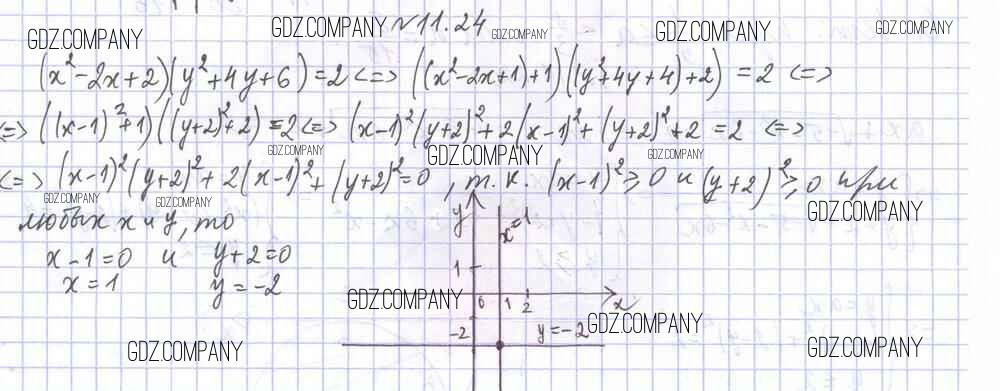 GDZ.COMPANY GDZ.COMPANY №11.24 GDZ.COMPANY GDZ.COMPANY GDZ.COMPANY
(x²-2x+2)(y²+4y+6)=2 <=> ((x²-2x+1)+1)((y²+4y+4)+2) = 2 <=>
<=> ((x-1)²+1)((y+2)²+2) =2 <=> (x-1)²(y+2)²+2(x-1)²+(y+2)²+2 =2 <=>
GDZ.COMPANY GDZ.COMPANY GDZ.COMPANY
<=> (x-1)²(y+2)²+2(x-1)²+(y+2)²=0, т.к. (x-1)²≥0 и (y+2)²≥0 при
GDZ.COMPANY GDZ.COMPANY GDZ.COMPANY
любых x и y, то
x-1=0 и y+2=0
x=1 y=-2
y x=1
1
GDZ.COMPANY 0 1 2 x
-2 y=-2 GDZ.COMPANY
GDZ.COMPANY GDZ.COMPANY